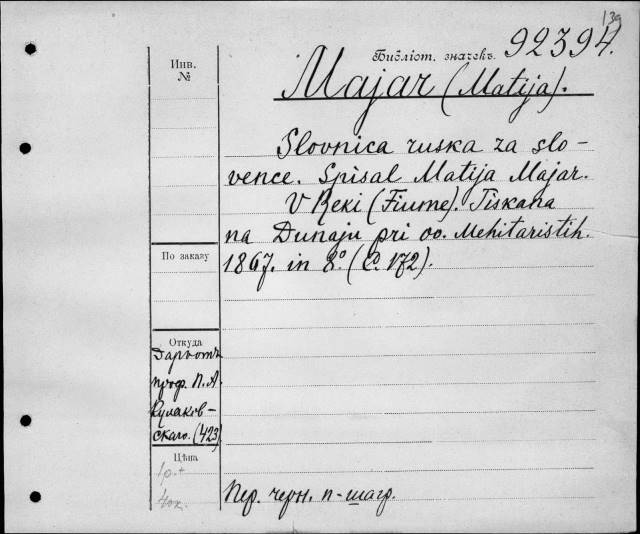 139
Библіот. значекъ. 92394.
Инв.
№
Majar (Matija).
Slovnica ruska za slo-
vence. Spisal Matija Majar.
V Reki (Fiume). Tiskana
na Dunaju pri oo. Mehitaristih.
1867. in 8.° (C. 172).
По заказу
Откуда
Даръ отъ
проф. П. А.
Кулаков-
скаго. (423)
Цѣна
1р. +
40к.
Пер. черн. п-шагр.